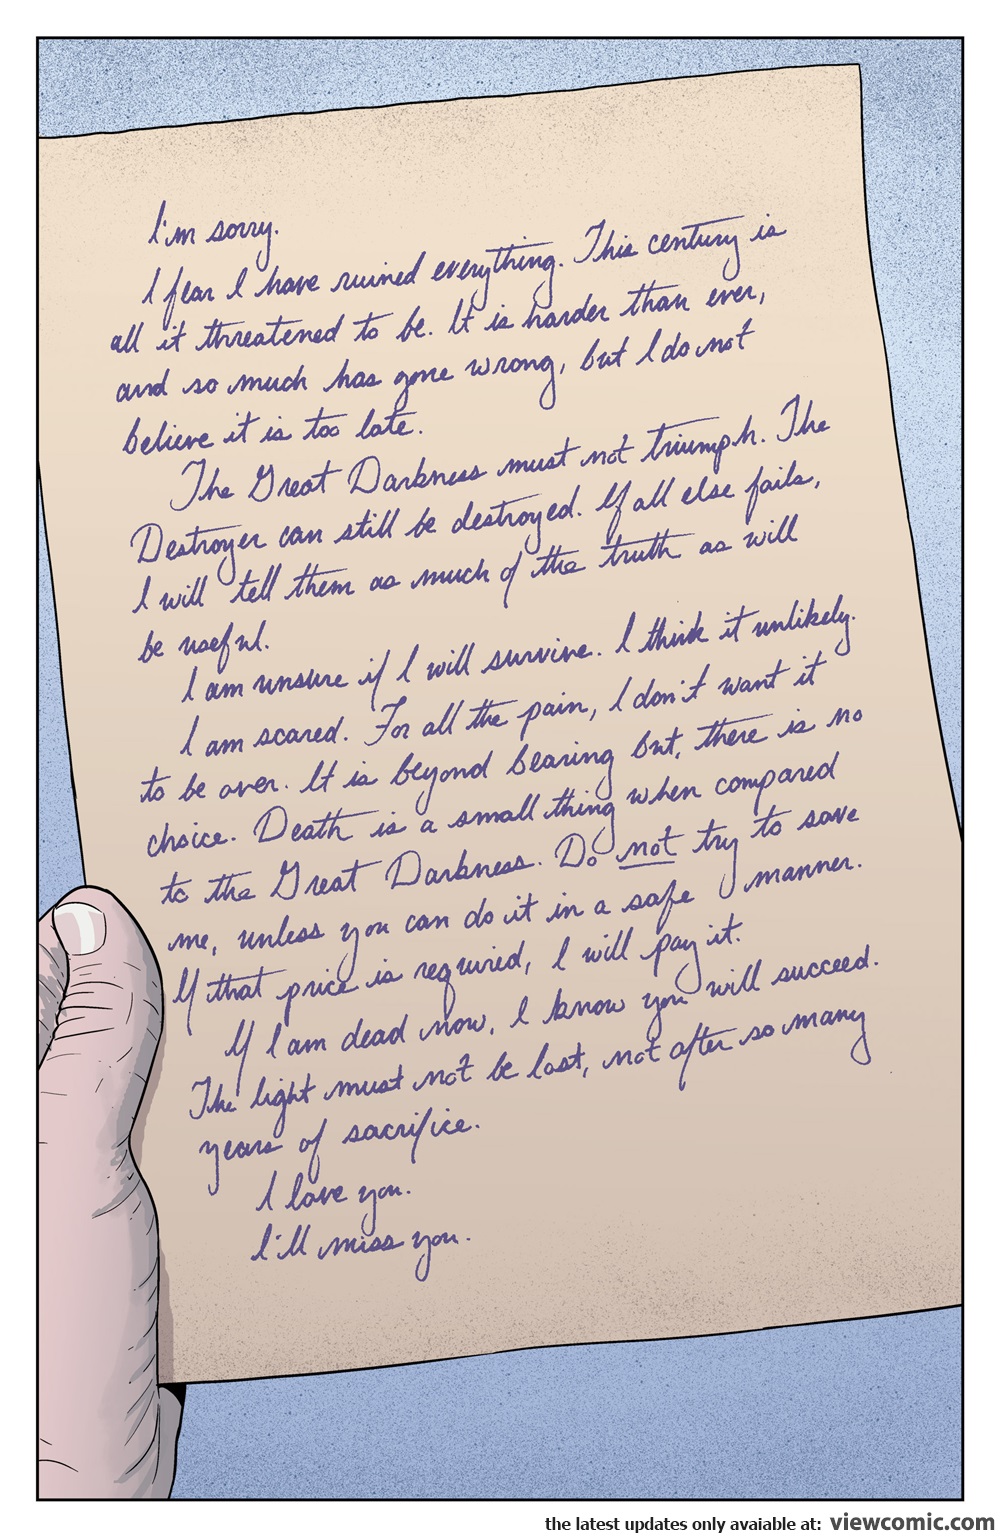 I'm sorry.
I fear I have ruined everything. This century is
all it threatened to be. It is harder than ever,
and so much has gone wrong, but I do not
believe it is too late.
The Great Darkness must not triumph. The
Destroyer can still be destroyed. If all else fails,
I will tell them as much of the truth as will
be useful.
I am unsure if I will survive. I think it unlikely.
I am scared. For all the pain, I don't want it
to be over. It is beyond bearing but, there is no
choice. Death is a small thing when compared
to the Great Darkness. Do not try to save
me, unless you can do it in a safe manner.
If that price is required, I will pay it.
If I am dead now, I know you will succeed.
The light must not be lost, not after so many
years of sacrifice.
I love you.
I'll miss you.
the latest updates only avaiable at: viewcomic.com